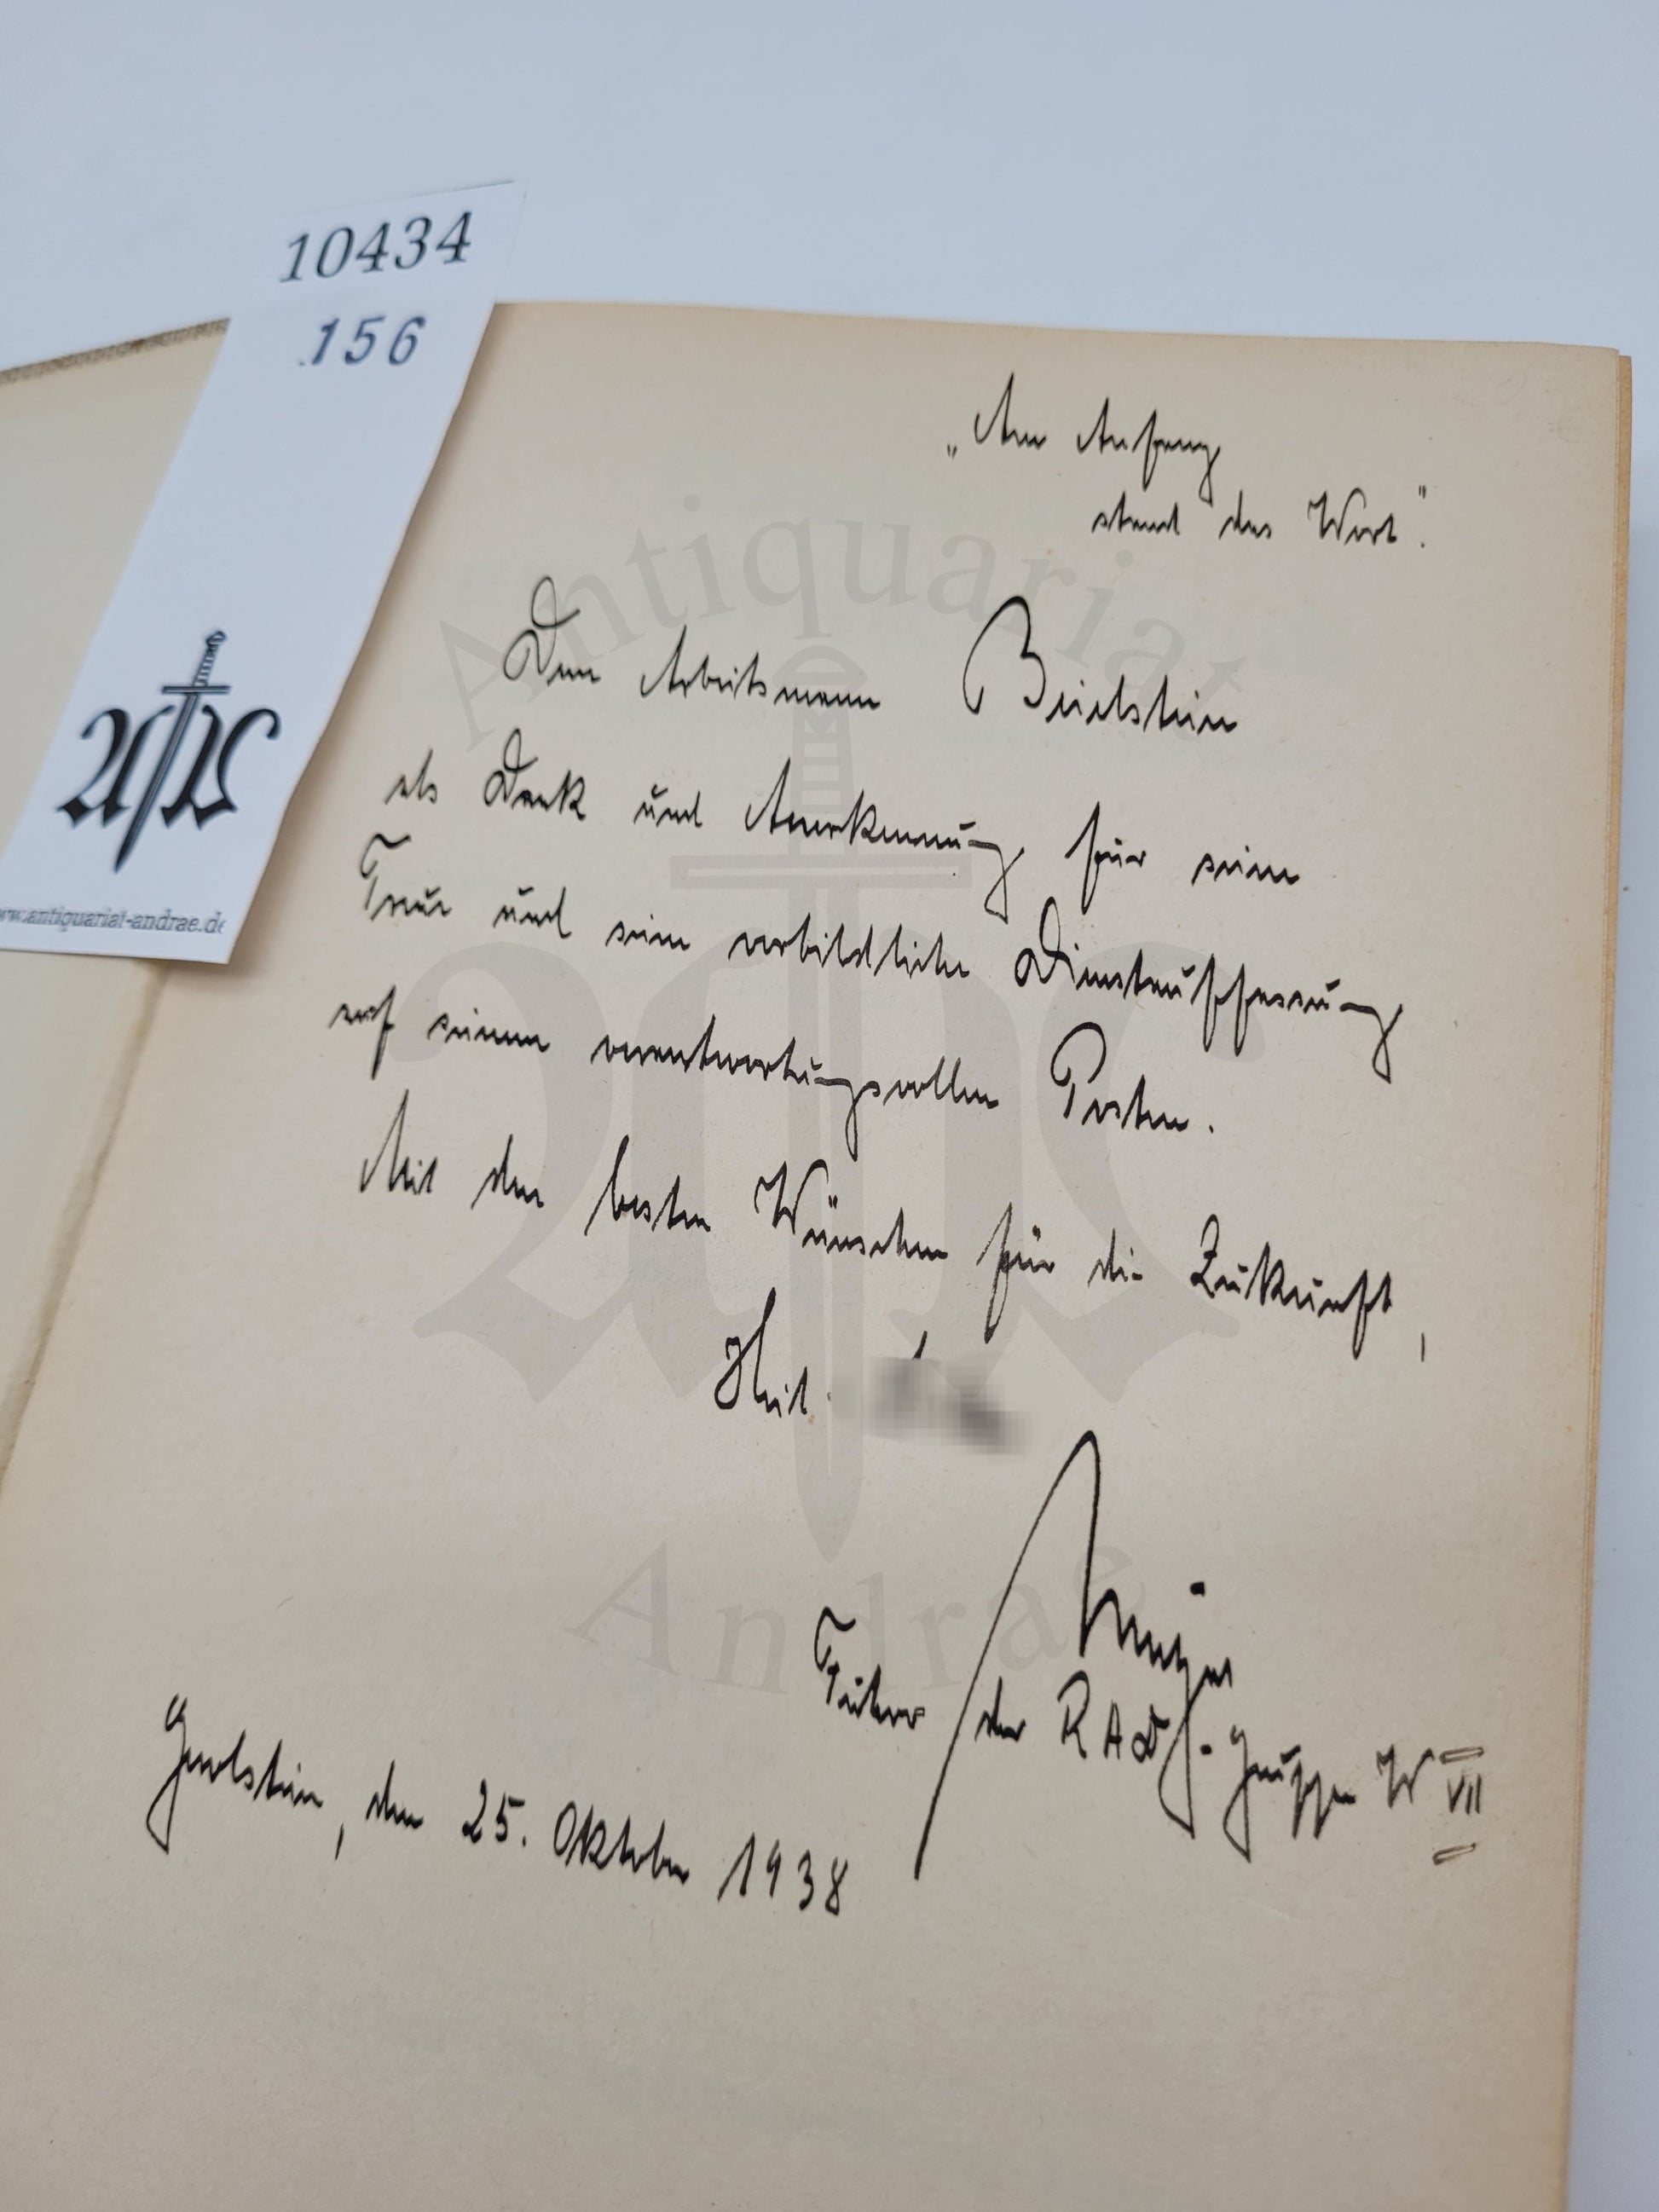 10434
156
www.antiquariat-andrae.de
„Am Anfang
stand das Wort".
Dem Arbeitsmann Beielstein
als Dank und Anerkennung für seine
Treue und seine vorbildliche Dienstauffassung
auf seinem verantwortungsvollen Posten.
Mit den besten Wünschen für die Zukunft,
Heil
Führer der RAD.-Gruppe W VII
Gerolstein, den 25. Oktober 1938
Antiquariat
Andrae